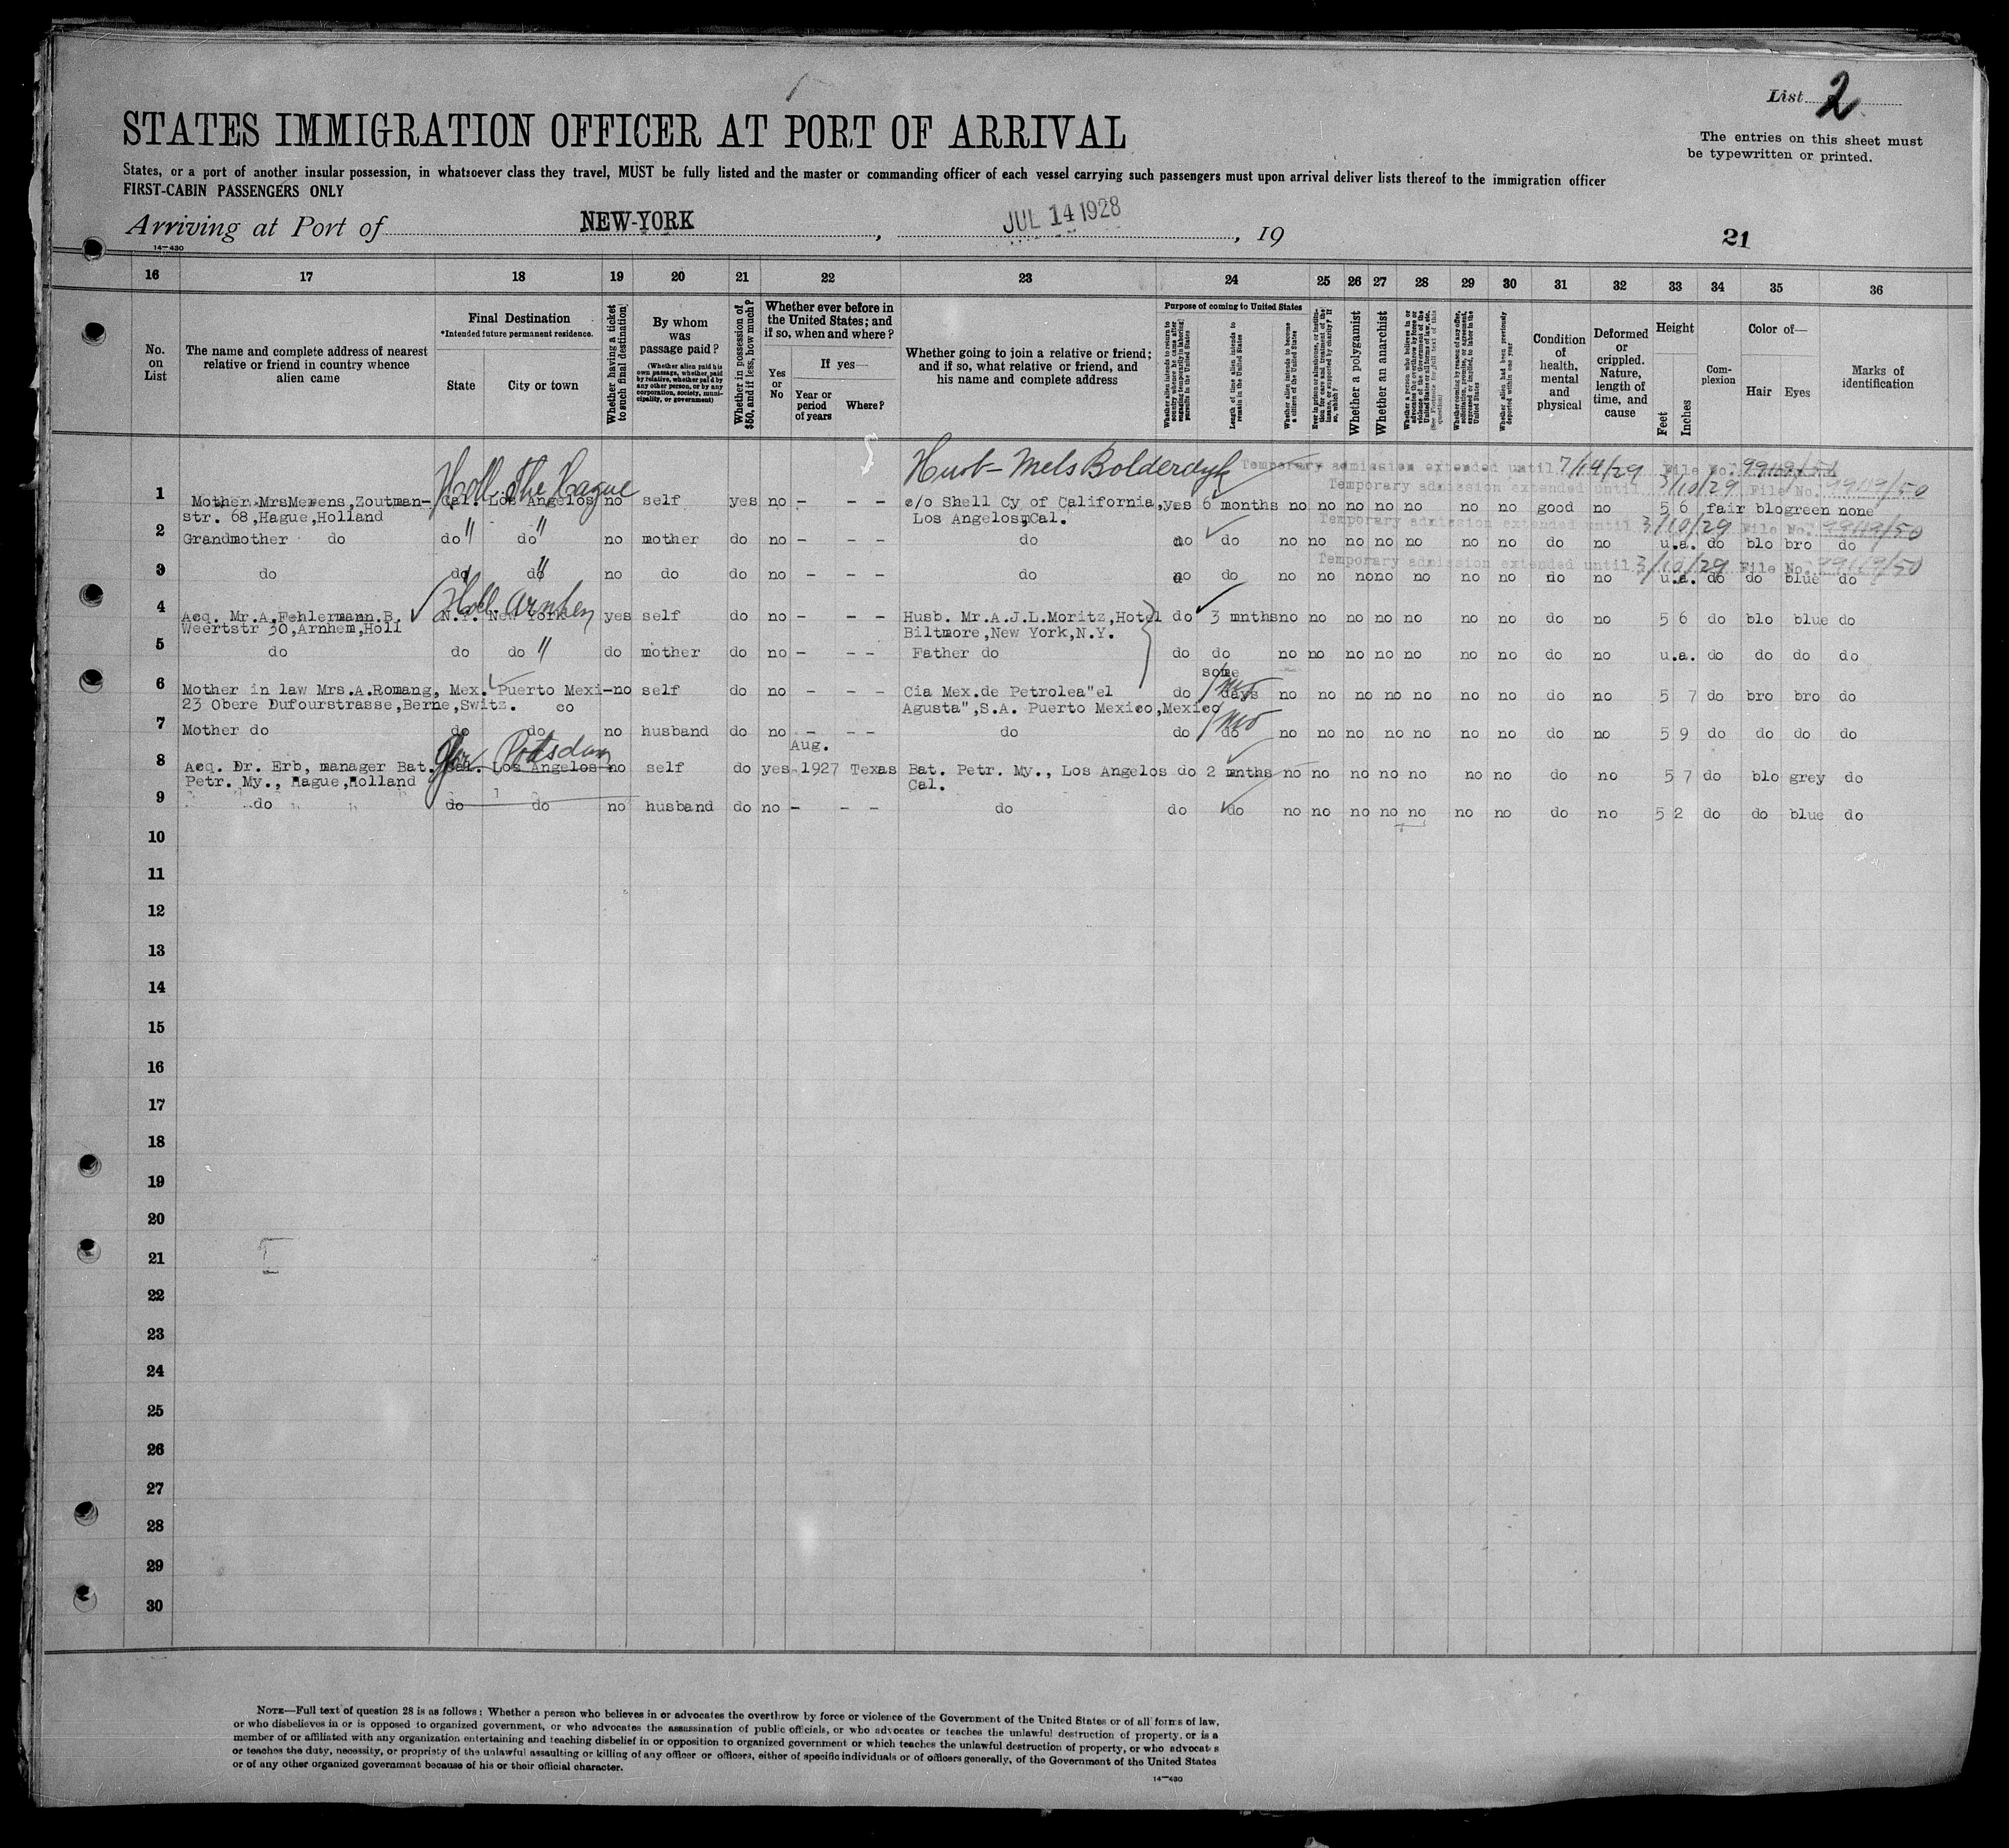 List 2
STATES IMMIGRATION OFFICER AT PORT OF ARRIVAL
The entries on this sheet must
be typewritten or printed.
States, or a port of another insular possession, in whatsoever class they travel, MUST be fully listed and the master or commanding officer of each vessel carrying such passengers must upon arrival deliver lists thereof to the immigration officer
FIRST-CABIN PASSENGERS ONLY
Arriving at Port of NEW-YORK, JUL 14 1928, 19
14—430
21
16 17 18 19 20 21 22 23 24 25 26 27 28 29 30 31 32 33 34 35 36
No. on List
The name and complete address of nearest relative or friend in country whence alien came
Final Destination
*Intended future permanent residence.
State
City or town
Whether having a ticket to such final destination
By whom was passage paid?
(Whether alien paid his own passage, whether paid by relative, whether paid by any other person, or by any corporation, society, municipality, or government)
Whether in possession of $50, and if less, how much?
Whether ever before in the United States; and if so, when and where?
Yes or No
If yes—
Year or period of years
Where?
Whether going to join a relative or friend; and if so, what relative or friend, and his name and complete address
Purpose of coming to United States
Whether alien intends to return to country whence he came after engaging temporarily in laboring pursuits in the United States
Length of time alien intends to remain in the United States
Whether alien intends to become a citizen of the United States
Ever in prison or almshouse, or institution for care and treatment of the insane, or supported by charity? If so, which?
Whether a polygamist
Whether an anarchist
Whether a person who believes in or advocates the overthrow by force or violence of the Government of the United States or all forms of law, etc. (See Footnote for full text of this question)
Whether coming by reason of any offer, solicitation, promise, or agreement, expressed or implied, to labor in the United States
Whether alien had been previously deported within one year
Condition of health, mental and physical
Deformed or crippled. Nature, length of time, and cause
Height
Feet
Inches
Complexion
Color of—
Hair Eyes
Marks of identification
Holl. The Hague
Husb- Mels Bolderdyk
Temporary admission extended until 7/14/29 File No. 99119/50
Temporary admission extended until 3/10/29 File No. 99119/50
1 Mother MrsMerens,Zoutman- Cal. Los Angelos no self yes no - - - c/o Shell Cy of California, yes 6 months no no no no no no no good no 5 6 fair blo green none
str. 68,Hague,Holland Los Angelos,Cal.
Temporary admission extended until 3/10/29 File No. 99119/50
2 Grandmother do do " do " no mother do no - - - do do do no no no no no no no do no u.a. do blo bro do
Temporary admission extended until 3/10/29 File No. 99119/50
3 do do do " no do do no - - - do do do no no no no no no no do no u.a. do do blue do
Holl. Arnhem
4 Acq. Mr.A.Fehlermann.B. N.Y. New York yes self do no - - - Husb. Mr.A.J.L.Moritz,Hotel do 3 mnths no no no no no no no do no 5 6 do blo blue do
Weertstr 30,Arnhem,Holl Biltmore,New York,N.Y.
5 do do do " do mother do no - - - Father do do do no no no no no no no do no u.a. do do do do
some
6 Mother in law Mrs.A.Romang, Mex. Puerto Mexi- no self do no - - - Cia Mex.de Petrolea"el do days no no no no no no no do no 5 7 do bro bro do
23 Obere Dufourstrasse,Berne,Switz. co Agusta",S.A. Puerto Mexico,Mexico
7 Mother do do do no husband do no - - - do do do no no no no no no no do no 5 9 do do do do
Ger Potsdam
Aug.
8 Acq. Dr. Erb, manager Bat. Cal. Los Angelos no self do yes 1927 Texas Bat. Petr. My., Los Angelos do 2 mnths no no no no no no no do no 5 7 do blo grey do
Petr. My., Hague,Holland Cal.
9 do do do no husband do no - - - do do do no no no no no no no do no 5 2 do do blue do
10
11
12
13
14
15
16
17
18
19
20
21
22
23
24
25
26
27
28
29
30
NOTE—Full text of question 28 is as follows: Whether a person who believes in or advocates the overthrow by force or violence of the Government of the United States or of all forms of law,
or who disbelieves in or is opposed to organized government, or who advocates the assassination of public officials, or who advocates or teaches the unlawful destruction of property, or is a
member of or affiliated with any organization entertaining and teaching disbelief in or opposition to organized government or which teaches the unlawful destruction of property, or who advocates
or teaches the duty, necessity, or propriety of the unlawful assaulting or killing of any officer or officers, either of specific individuals or of officers generally, of the Government of the United States
or of any other organized government because of his or their official character.
14—430